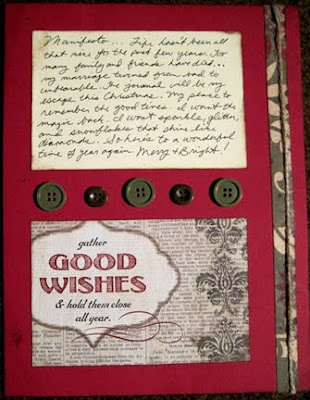 Manifesto... Life hasn't been all
that nice for the past few years. Too
many family and friends have died...
my marriage turned from bad to
unbearable. The journal will be my
escape this Christmas. My place to
remember the good times. I want the
magic back. I want sparkle, glitter,
and snowflakes that shine like
diamonds. So here's to a wonderful
time of year again. Merry & Bright!
gather
GOOD
WISHES
& hold them close
all year.